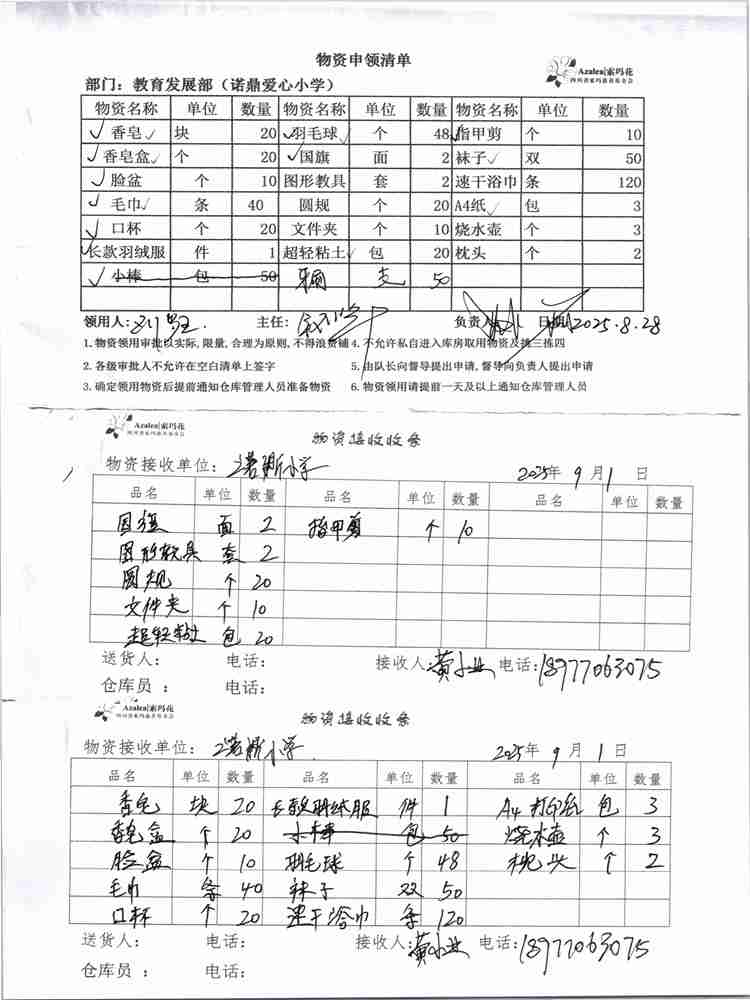 物资申领清单
Azalea|索玛花
四川省索玛慈善基金会
部门：教育发展部（诺鼎爱心小学）
物资名称 单位 数量 物资名称 单位 数量 物资名称 单位 数量
香皂 块 20 羽毛球 个 48 指甲剪 个 10
香皂盒 个 20 国旗 面 2 袜子 双 50
脸盆 个 10 图形教具 套 2 速干浴巾 条 120
毛巾 条 40 圆规 个 20 A4纸 包 3
口杯 个 20 文件夹 个 10 烧水壶 个 3
长款羽绒服 件 1 超轻粘土 包 20 枕头 个 2
小棒 包 50 牙刷 支 50
领用人： 主任： 负责人 日期 2025.8.28
1.物资领用审批以实际,限量,合理为原则,不得浪费铺 4.不允许私自进入库房取用物资及挑三拣四
2.各级审批人不允许在空白清单上签字 5.由队长向督导提出申请,督导向负责人提出申请
3.确定领用物资后提前通知仓库管理人员准备物资 6.物资领用请提前一天及以上通知仓库管理人员
Azalea|索玛花
四川省索玛慈善基金会
物资接收收条
物资接收单位：诺鼎小学 2025年9月1日
品名 单位 数量 品名 单位 数量 品名 单位 数量
国旗 面 2 指甲剪 个 10
图形教具 套 2
圆规 个 20
文件夹 个 10
超轻粘土 包 20
送货人： 电话： 接收人：黄小业 电话：18977063075
仓库员： 电话：
Azalea|索玛花
四川省索玛慈善基金会
物资接收收条
物资接收单位：诺鼎小学 2025年9月1日
品名 单位 数量 品名 单位 数量 品名 单位 数量
香皂 块 20 长款羽绒服 件 1 A4打印纸 包 3
香皂盒 个 20 小棒 包 50 烧水壶 个 3
脸盆 个 10 羽毛球 个 48 枕头 个 2
毛巾 条 40 袜子 双 50
口杯 个 20 速干浴巾 条 120
送货人： 电话： 接收人：黄小业 电话：18977063075
仓库员： 电话：